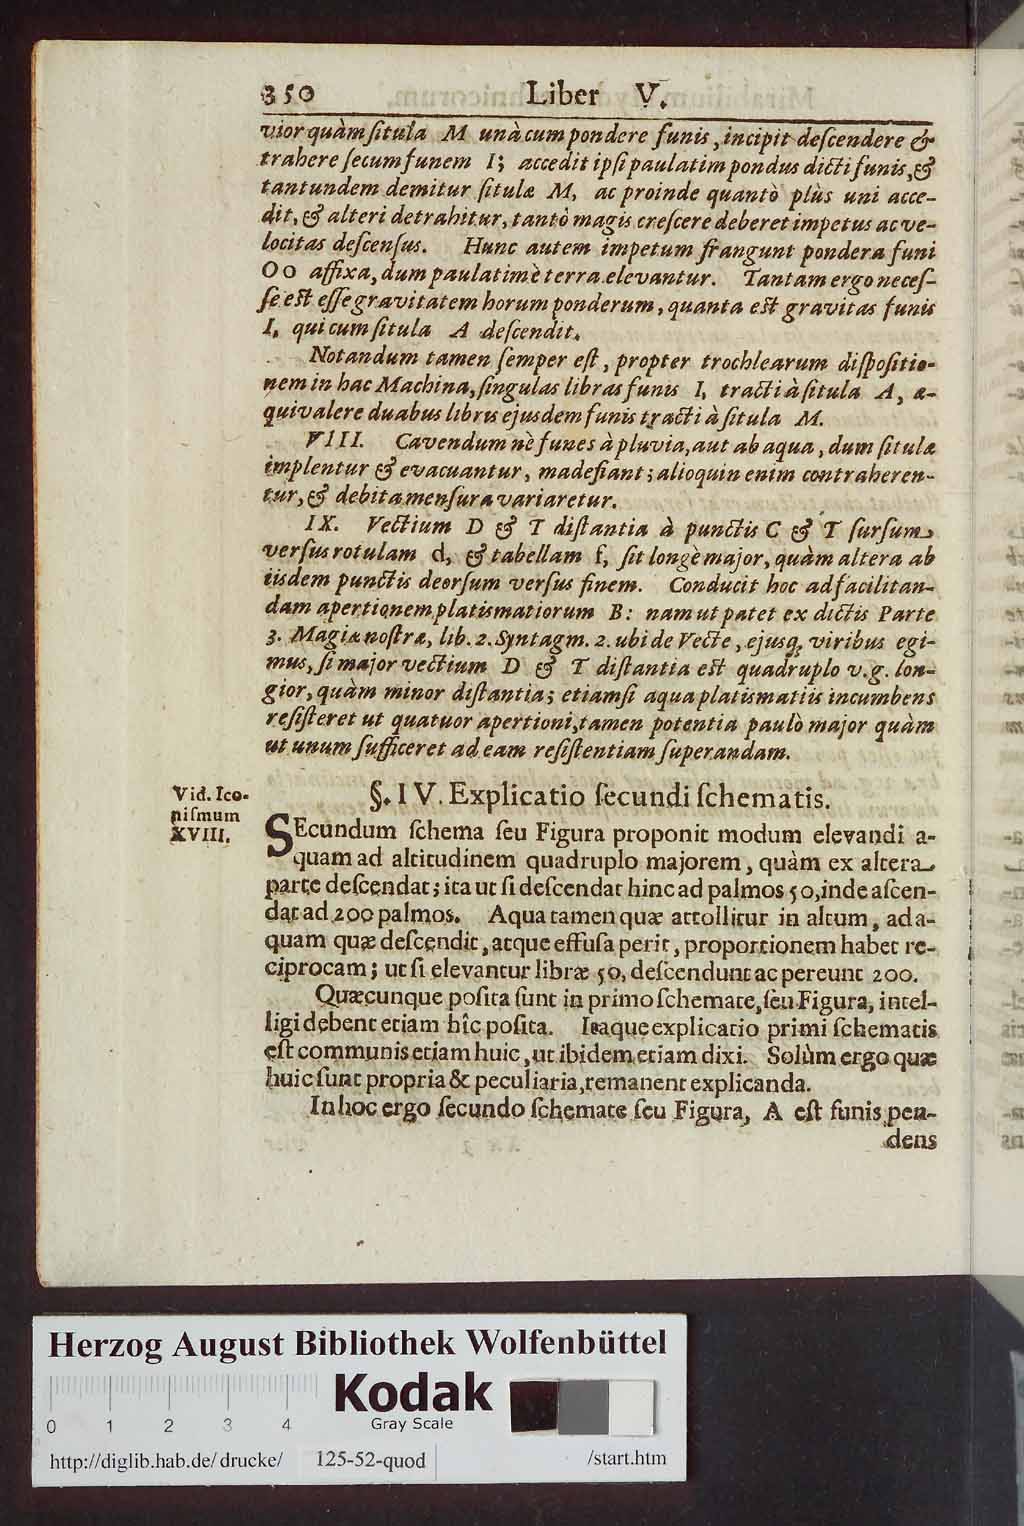 350 Liber V.
vior quàm ſitula M unà cum pondere funis, incipit deſcendere &
trahere ſecum funem I; accedit ipſi paulatim pondus dicti funis, &
tantundem demitur ſitulæ M, ac proinde quantò plùs uni acce-
dit, & alteri detrahitur, tantò magis creſcere deberet impetus ac ve-
locitas deſcenſus. Hunc autem impetum frangunt pondera funi
Oo affixa, dum paulatim è terra elevantur. Tantam ergo neceſ-
ſe eſt eſſe gravitatem horum ponderum, quanta eſt gravitas funis
I, qui cum ſitula A deſcendit.
Notandum tamen ſemper eſt, propter trochlearum diſpoſitio-
nem in hac Machina, ſingulas libras funis I, tracti à ſitula A, æ-
quivalere duabus libris ejusdem funis tracti à ſitula M.
VIII. Cavendum nè funes à pluvia, aut ab aqua, dum ſitulæ
implentur & evacuantur, madefiant; alioquin enim contraheren-
tur, & debita menſura variaretur.
IX. Vectium D & T diſtantia à punctis C & T ſurſum
verſus rotulam d, & tabellam f, ſit longè major, quàm altera ab
iisdem punctis deorſum verſus finem. Conducit hoc ad facilitan-
dam apertionem platismatiorum B: nam ut patet ex dictis Parte
3. Magiæ noſtræ, lib. 2. Syntagm. 2. ubi de Vecte, ejusq; viribus egi-
mus, ſi major vectium D & T diſtantia eſt quadruplo v.g. lon-
gior, quàm minor diſtantia; etiamſi aqua platismatiis incumbens
reſiſteret ut quatuor apertioni, tamen potentia paulò major quàm
ut unum ſufficeret ad eam reſiſtentiam ſuperandam.
§. IV. Explicatio ſecundi ſchematis.
Vid. Ico-
niſmum
XVIII.
SEcundum ſchema ſeu Figura proponit modum elevandi a-
quam ad altitudinem quadruplo majorem, quàm ex altera
parte deſcendat; ita ut ſi deſcendat hinc ad palmos 50, inde aſcen-
dat ad 200 palmos. Aqua tamen quæ attollitur in altum, ad a-
quam quæ deſcendit, atque effuſa perit, proportionem habet re-
ciprocam; ut ſi elevantur libræ 50, deſcendunt ac pereunt 200.
Quæcunque poſita ſunt in primo ſchemate, ſeu Figura, intel-
ligi debent etiam hîc poſita. Itaque explicatio primi ſchematis
eſt communis etiam huic, ut ibidem etiam dixi. Solùm ergo quæ
huic ſunt propria & peculiaria, remanent explicanda.
In hoc ergo ſecundo ſchemate ſeu Figura, A eſt funis pen-
dens
Herzog August Bibliothek Wolfenbüttel
Kodak
Gray Scale
0 1 2 3 4
http://diglib.hab.de/drucke/ 125-52-quod /start.htm